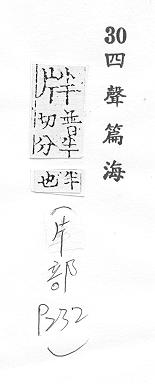 30四聲篇海
牉普半切分
半也
(片部
P332)